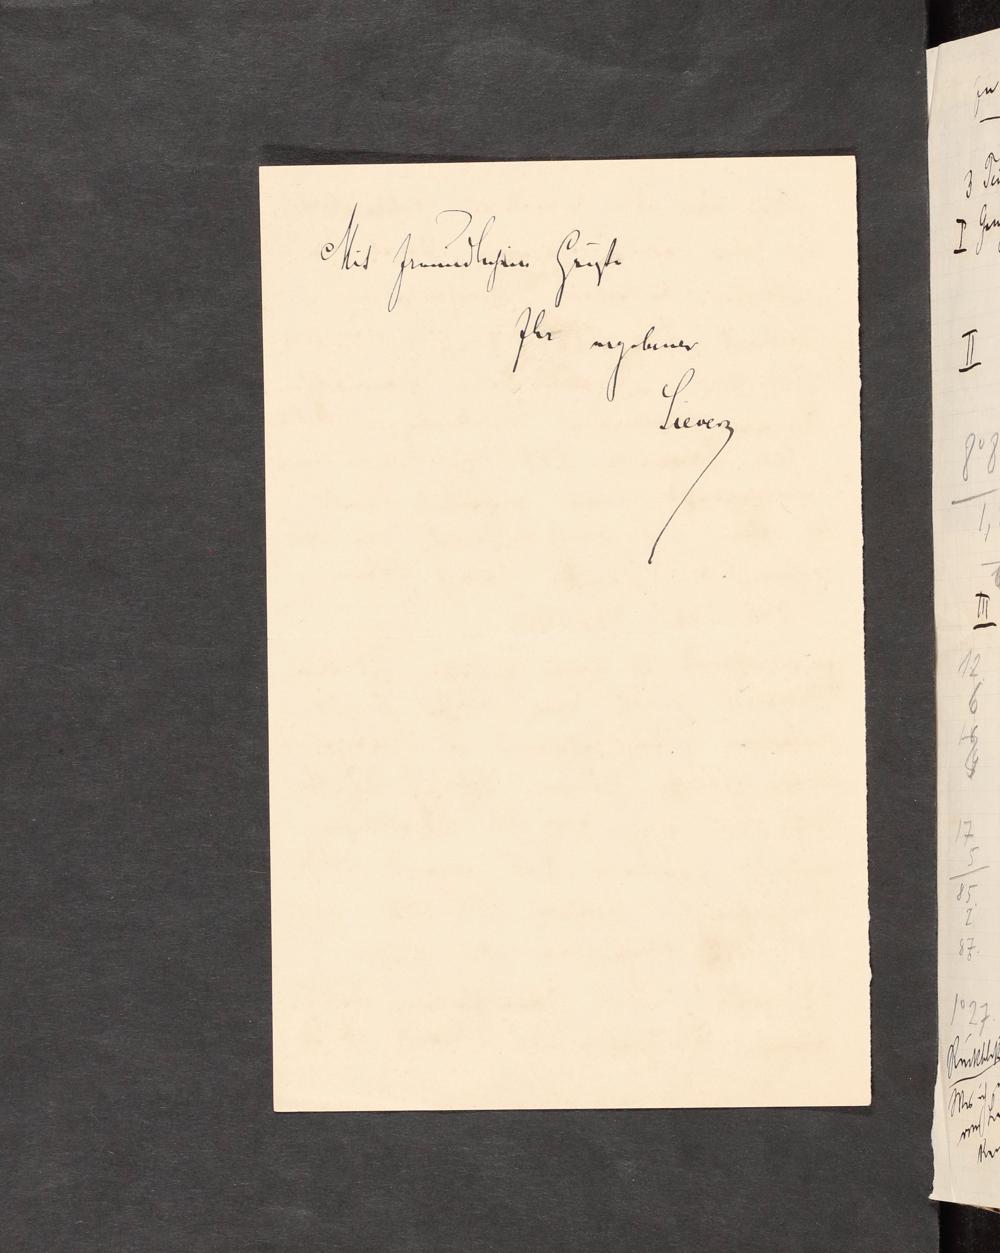 Mit freundlichem Gruße
Ihr ergebener
Sievers
II
8° 8
III
12
6
17
5
85.
2
87.
1° 27.